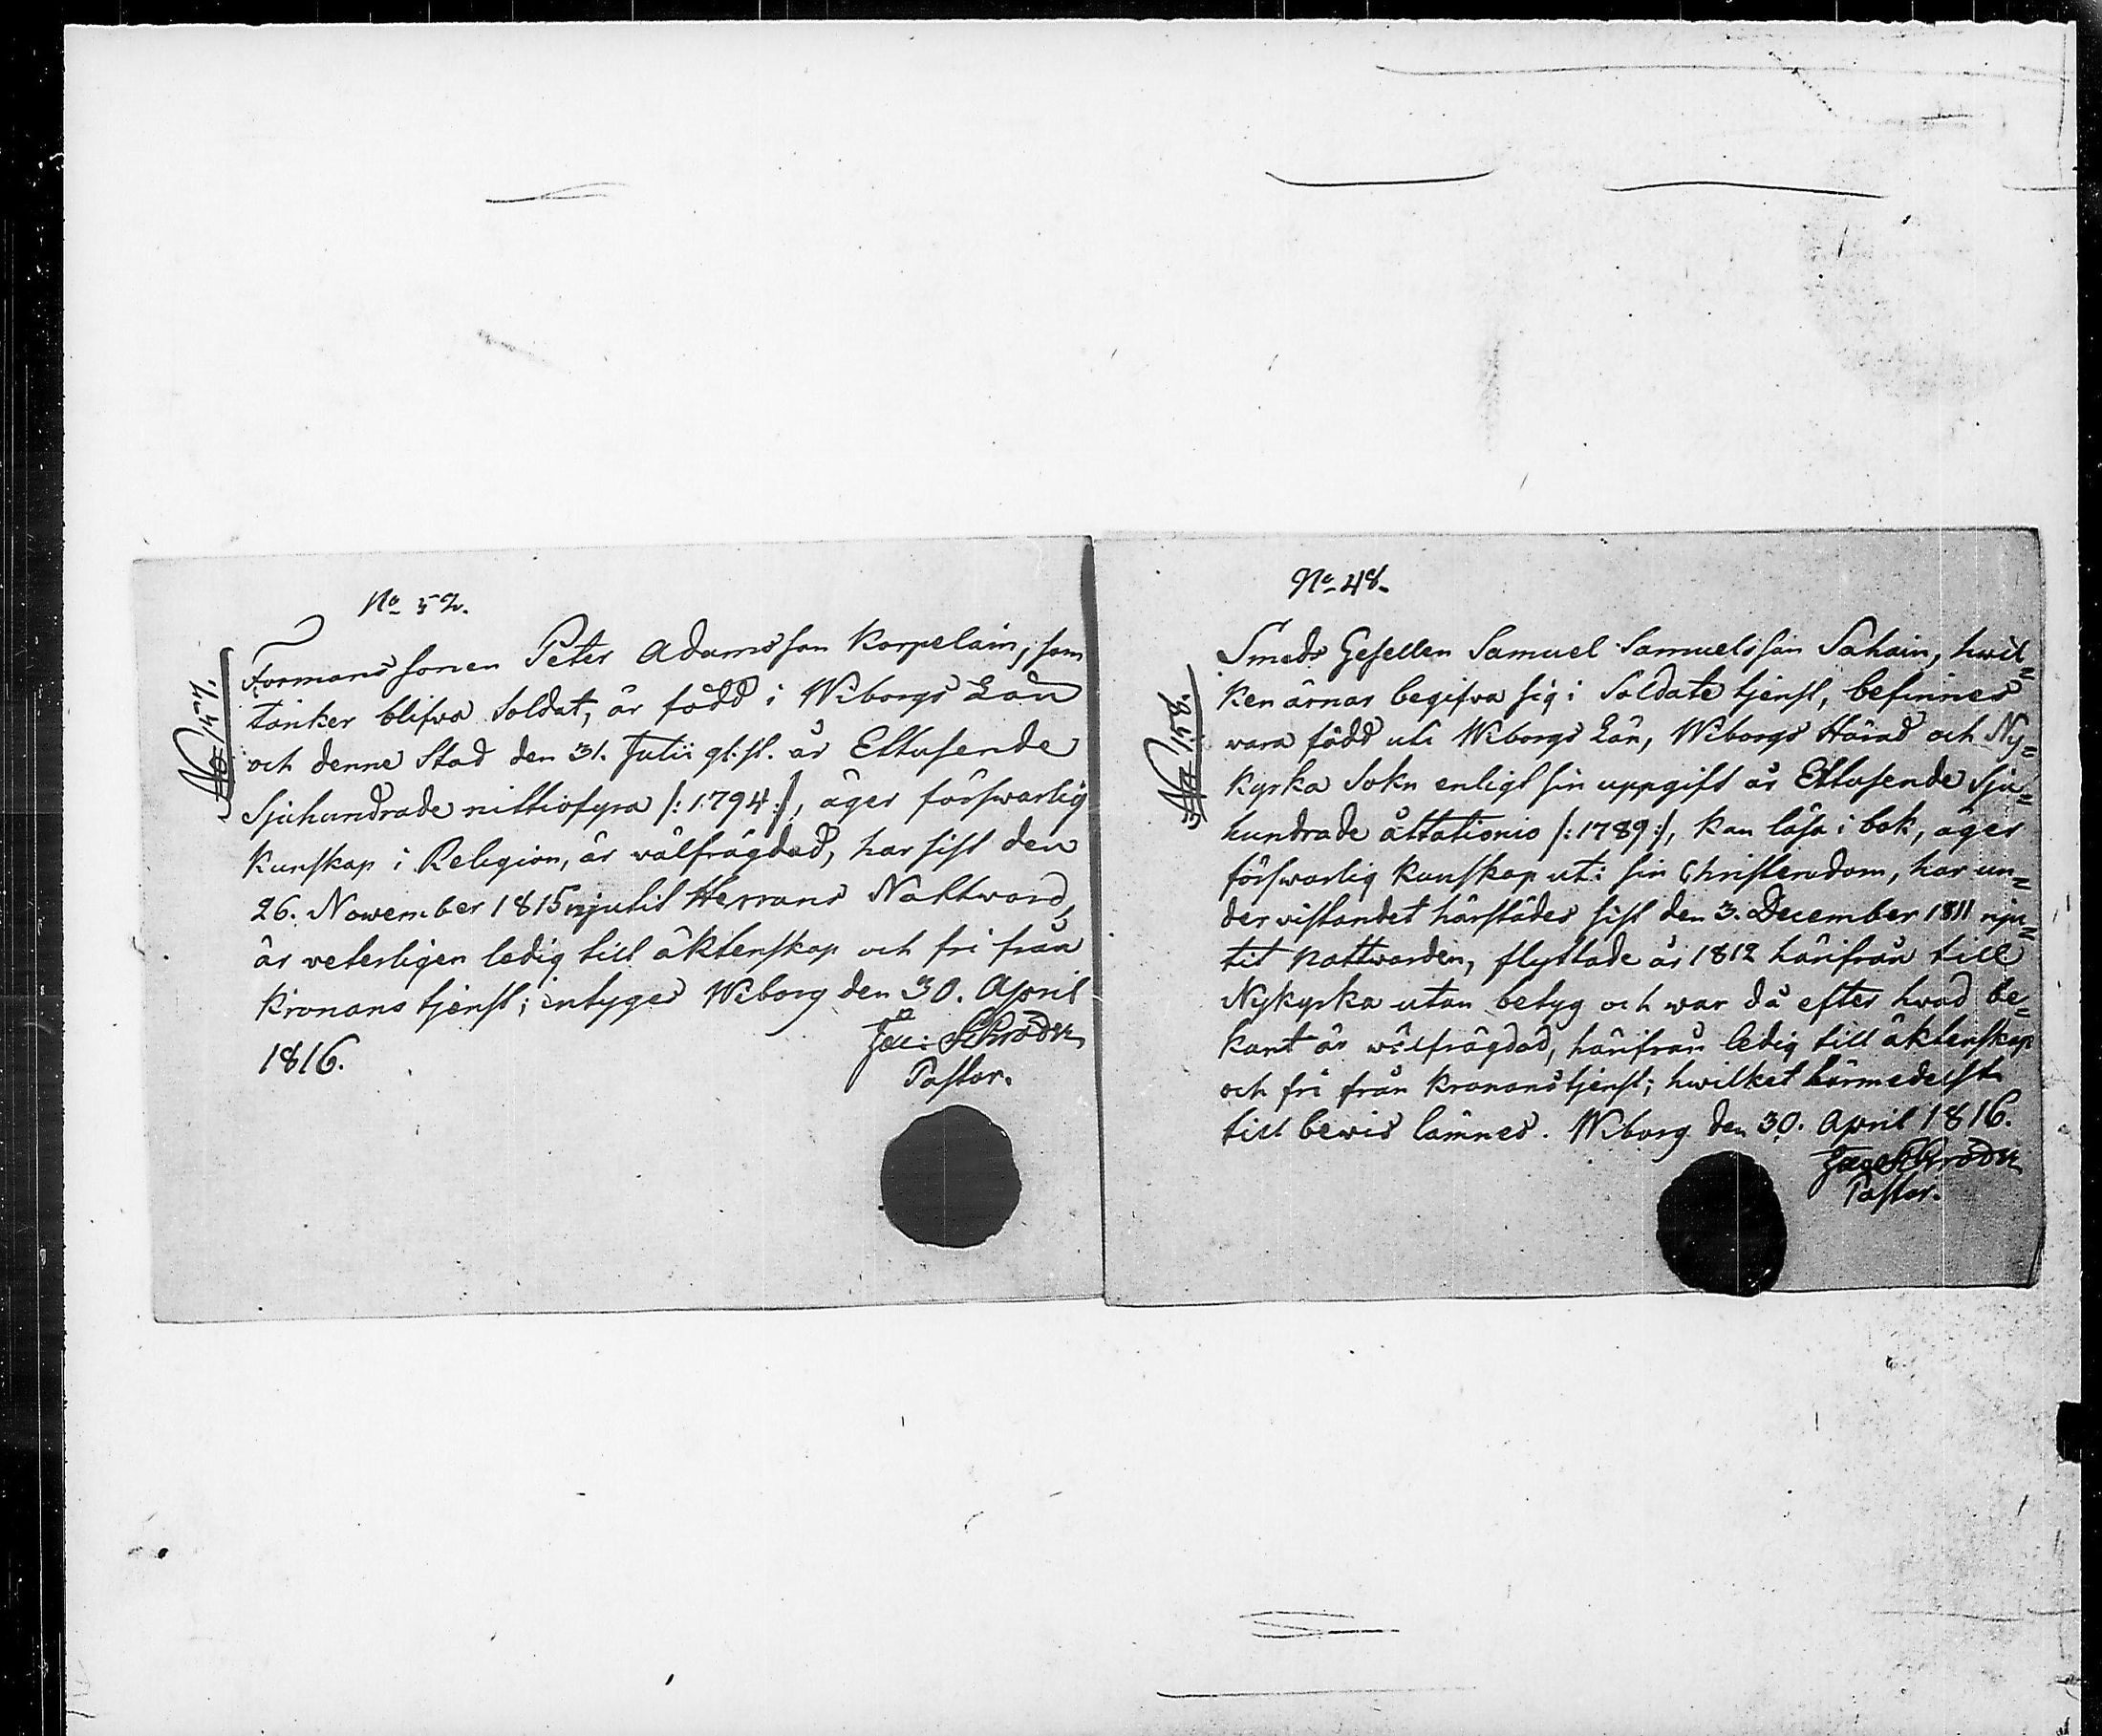 No 52.
No 157.
Formans sonen Peter Adamsson Korpelain, som
tänker blifva Soldat, är född i Wiborgs Län
och denne Stad den 31. Julii gl. st. år Ettusende
Sjuhundrade nittiofyra /: 1794 :/, äger förswarlig
Kunskap i Religion, är wälfrägdad, har sist den
26. November 1815 njutit Herrans Nattward,
är veterligen ledig till äktenskap och fri från
Kronans tjenst; intygar Wiborg den 30. April
1816.
Schröder
Pastor.
No 48.
No 158.
Smeds Gesellen Samuel Samuelsson Sahain, hwil=
ken ärnar begifva sig i Soldate tjenst, befinnes
vara född uti Wiborgs Län, Wiborgs Härad och Ny=
kyrka Sokn enligt sin uppgift år Ettusende Sju=
hundrade åttationio /: 1789 :/, kan läsa i bok, äger
förswarlig Kunskap uti sin Christendom, har un=
der vistandet härstädes sist den 3. December 1811 nju=
tit Nattwarden, flyttade år 1812 härifrån till
Nykyrka utan betyg och war då efter hwad be=
kant är wälfrägdad, härifrån ledig till äktenskap
och fri från Kronans tjenst; hwilket härmedelst
till bewis lämnes. Wiborg den 30. April 1816.
Schröder
Pastor.